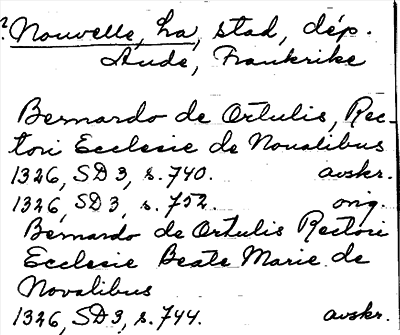 ? Nouvelle, La, stad, dép.
Aude, Frankrike
Bernardo de Ortulis, Rec-
tori Ecclesie de Noualibus
1326, SD 3, s. 740. avskr.
1326, SD 3, s. 752. orig.
Bernardo de Ortulis Rectori
Ecclesie Beate Marie de
Novalibus
1326, SD 3, s. 744. avskr.